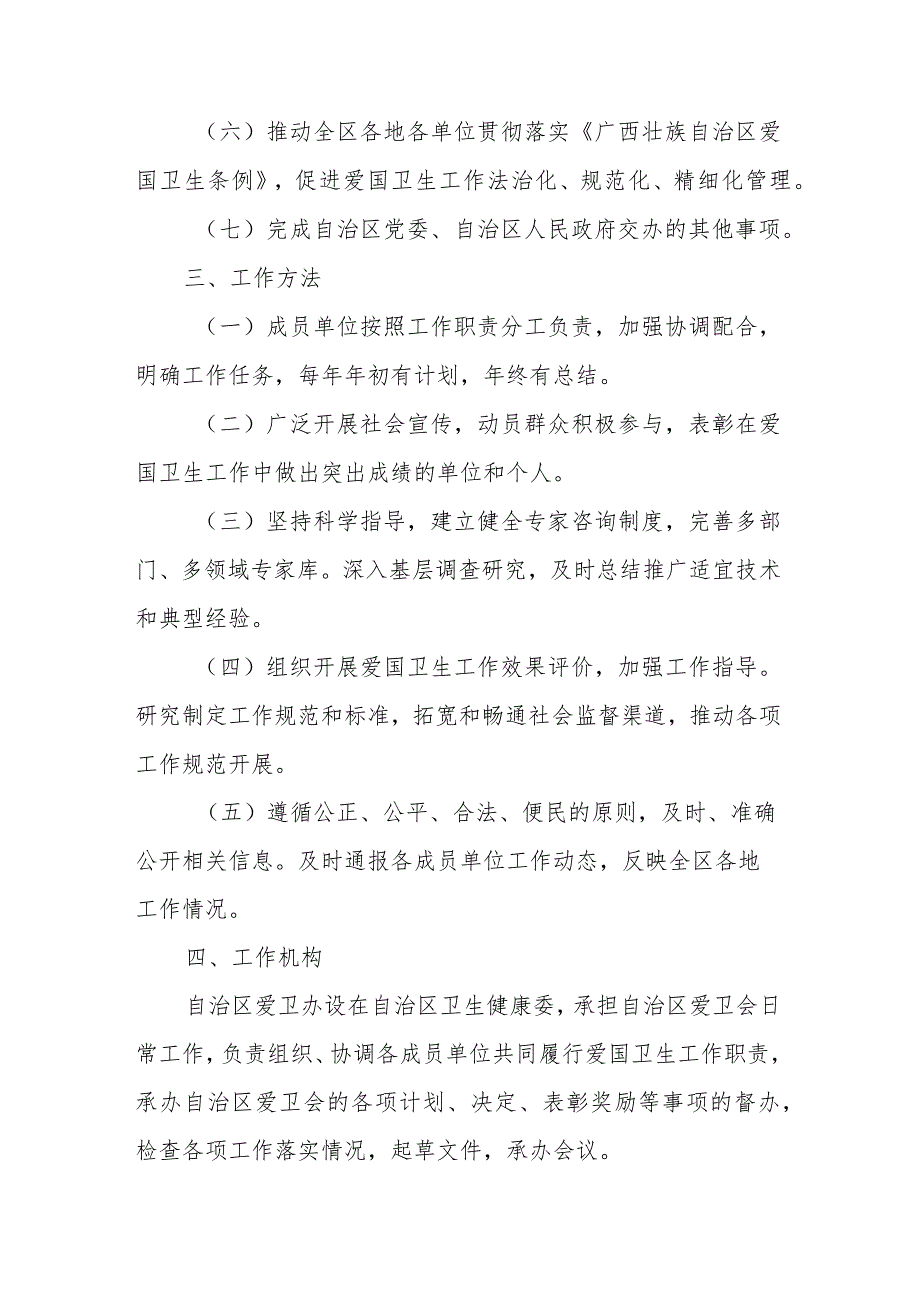 （六）推动全区各地各单位贯彻落实《广西壮族自治区爱
国卫生条例》，促进爱国卫生工作法治化、规范化、精细化管理。
（七）完成自治区党委、自治区人民政府交办的其他事项。
三、工作方法
（一）成员单位按照工作职责分工负责，加强协调配合，
明确工作任务，每年年初有计划，年终有总结。
（二）广泛开展社会宣传，动员群众积极参与，表彰在爱
国卫生工作中做出突出成绩的单位和个人。
（三）坚持科学指导，建立健全专家咨询制度，完善多部
门、多领域专家库。深入基层调查研究，及时总结推广适宜技术
和典型经验。
（四）组织开展爱国卫生工作效果评价，加强工作指导。
研究制定工作规范和标准，拓宽和畅通社会监督渠道，推动各项
工作规范开展。
（五）遵循公正、公平、合法、便民的原则，及时、准确
公开相关信息。及时通报各成员单位工作动态，反映全区各地
工作情况。
四、工作机构
自治区爱卫办设在自治区卫生健康委，承担自治区爱卫会日
常工作，负责组织、协调各成员单位共同履行爱国卫生工作职责，
承办自治区爱卫会的各项计划、决定、表彰奖励等事项的督办，
检查各项工作落实情况，起草文件，承办会议。